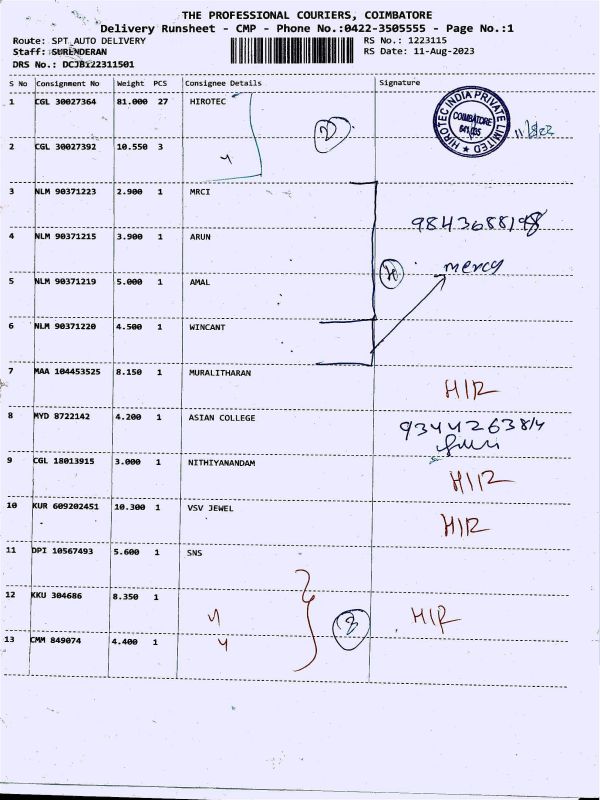 THE PROFESSIONAL COURIERS, COIMBATORE
Delivery Runsheet - CMP - Phone No.:0422-3505555 - Page No.:1
Route: SPT AUTO DELIVERY RS No.: 1223115
Staff: SURENDERAN RS Date: 11-Aug-2023
DRS No.: DCJB122311501
S No Consignment No Weight PCS Consignee Details Signature
1 CGL 30027364 81.000 27 HIROTEC
HIROTEC INDIA PRIVATE LIMITED
COIMBATORE
641 035
2 CGL 30027392 10.550 3 〃
3 NLM 90371223 2.900 1 MRCI
9843688198
4 NLM 90371215 3.900 1 ARUN
mercy
5 NLM 90371219 5.000 1 AMAL
6 NLM 90371220 4.500 1 WINCANT
7 MAA 104453525 8.150 1 MURALITHARAN
H/R
8 MYD 8722142 4.200 1 ASIAN COLLEGE
9344263814
9 CGL 18013915 3.000 1 NITHIYANANDAM
H/R
10 KUR 609202451 10.300 1 VSV JEWEL
H/R
11 DPI 10567493 5.600 1 SNS
12 KKU 304686 8.350 1 〃 H/R
13 CMM 849074 4.400 1 〃